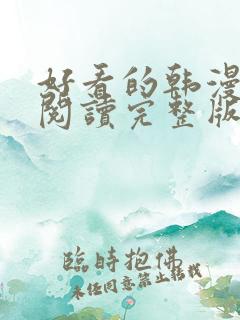 好看的韩漫
閱讀完整版
臨時抱佛
未任同意禁止转载